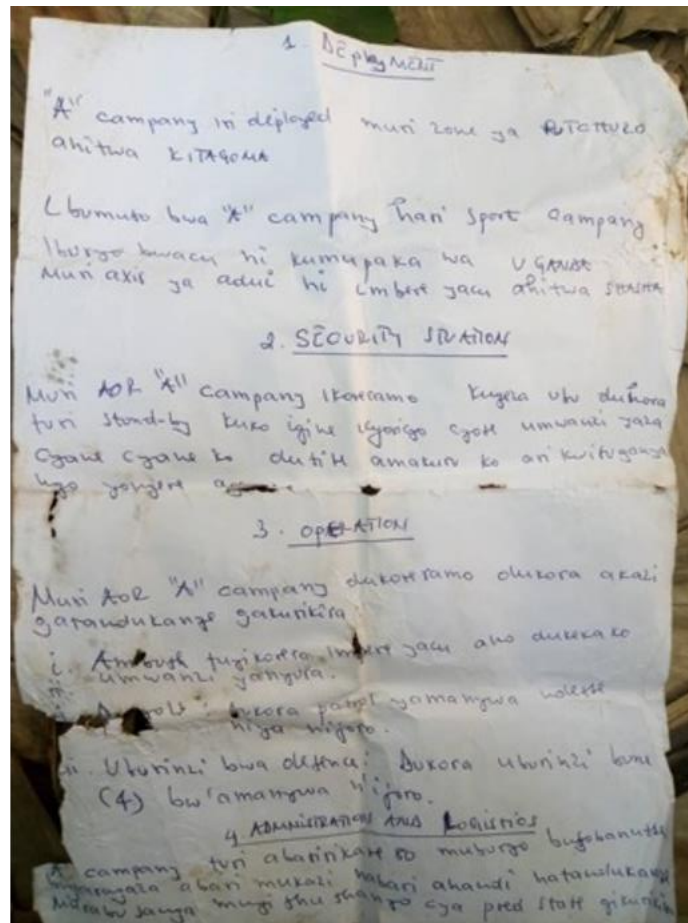 1. DEployMENT
"A" campany iri deployed muri zone ya RUTCHURO
ahitwa KITAGOMA
Ibumoso bwa "A" campany hari Sport Campany
Iburyo bwacu ni kumupaka wa UGANDA
Muri axis ya adui ni imbere yacu ahitwa SHASHA
2. SECURITY SITUATION
Muri AOR "A" campany Ikoreramo Kugeza ubu dukora
turi Stand-by kuko igihe icyaricyo cyose umwanzi yaza
Cyane Cyane ko dufite amakuru ko ari kwitegura
ngo yongere
3. OPERATION
Muri AOR "A" campany dukoreramo dukora akazi
gatandukanye gakurikira
i. Ambush tuzikorera imbere yacu aho dukeka ko
umwanzi yanyura.
ii. dukora patrol yamanywa
niya nijoro.
iii. Uburinzi bwa defence: Dukora uburinzi bune
(4) bw'amanywa n'ijoro.
4. ADMNISTRATION AND LOGISTICS
A campany turi abaririkare 80 muburyo
abari mukazi nabari ahandi hatandukanye
cya pred State gikurikira